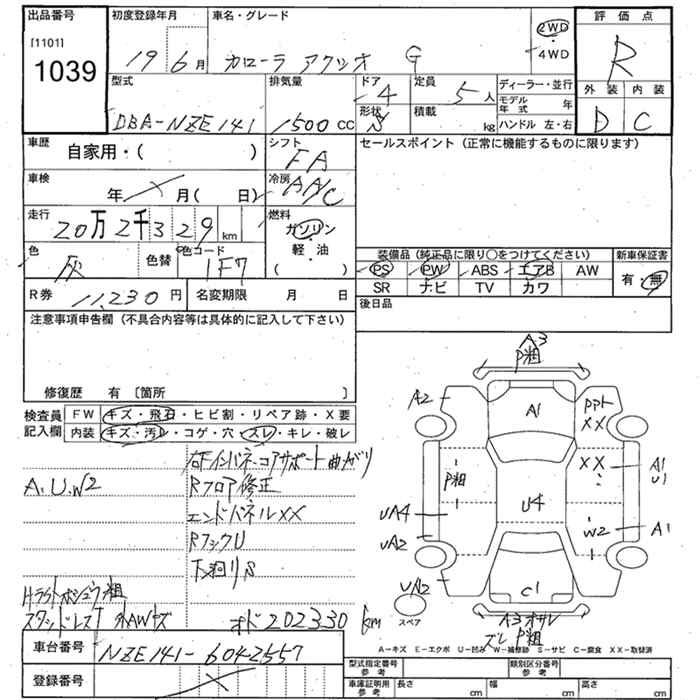 出品番号 初度登録年月 車名・グレード 評価点
[1101] 1039 19年6月 カローラ アクシオ G 2WD・4WD R
型式 排気量 ドア 定員 ディーラー・並行 外装 内装
DBA-NZE141 1500cc 4 5人 モデル年式 年 D C
形状 積載 kg ハンドル 左・右
車歴 自家用・( ) シフト FA セールスポイント (正常に機能するものに限ります)
車検 年 月( 日) 冷房 AA/C
走行 20万2千329km 燃料 ガソリン・軽・油 ( )
色 灰 色替 色コード 1F7 装備品 (純正品に限り〇をつけてください) 新車保証書
PS PW ABS エアB AW 有・無
R券 11,230円 名変期限 月 日 SR ナビ TV カワ
注意事項申告欄 (不具合内容等は具体的に記入して下さい) 後日品
修復歴 有 [箇所 ]
検査員記入欄 FW キズ・飛石・ヒビ割・リペア跡・X要
内装 キズ・汚レ・コゲ・穴・スレ・キレ・破レ
右Fインパネ・コアサポート曲がり
A.U.W2 Rフロア修正
エンドパネルXX
RフックU
下廻りS
スタッドレス オド202330km
車台番号 NZE141-6042557
登録番号
A3
P粗
A2 A1 ppt XX
P粗 XX A1 U1
UA4 U4 W2 A1
UA2
UA2 C1
スペア
ズレ P粗
A-キズ E-エクボ U-凹み W-補修跡 S-サビ C-腐食 XX-取替済
型式指定番号 参考 類別区分番号 参考
車庫証明用 参考 長さ cm 幅 cm 高さ cm